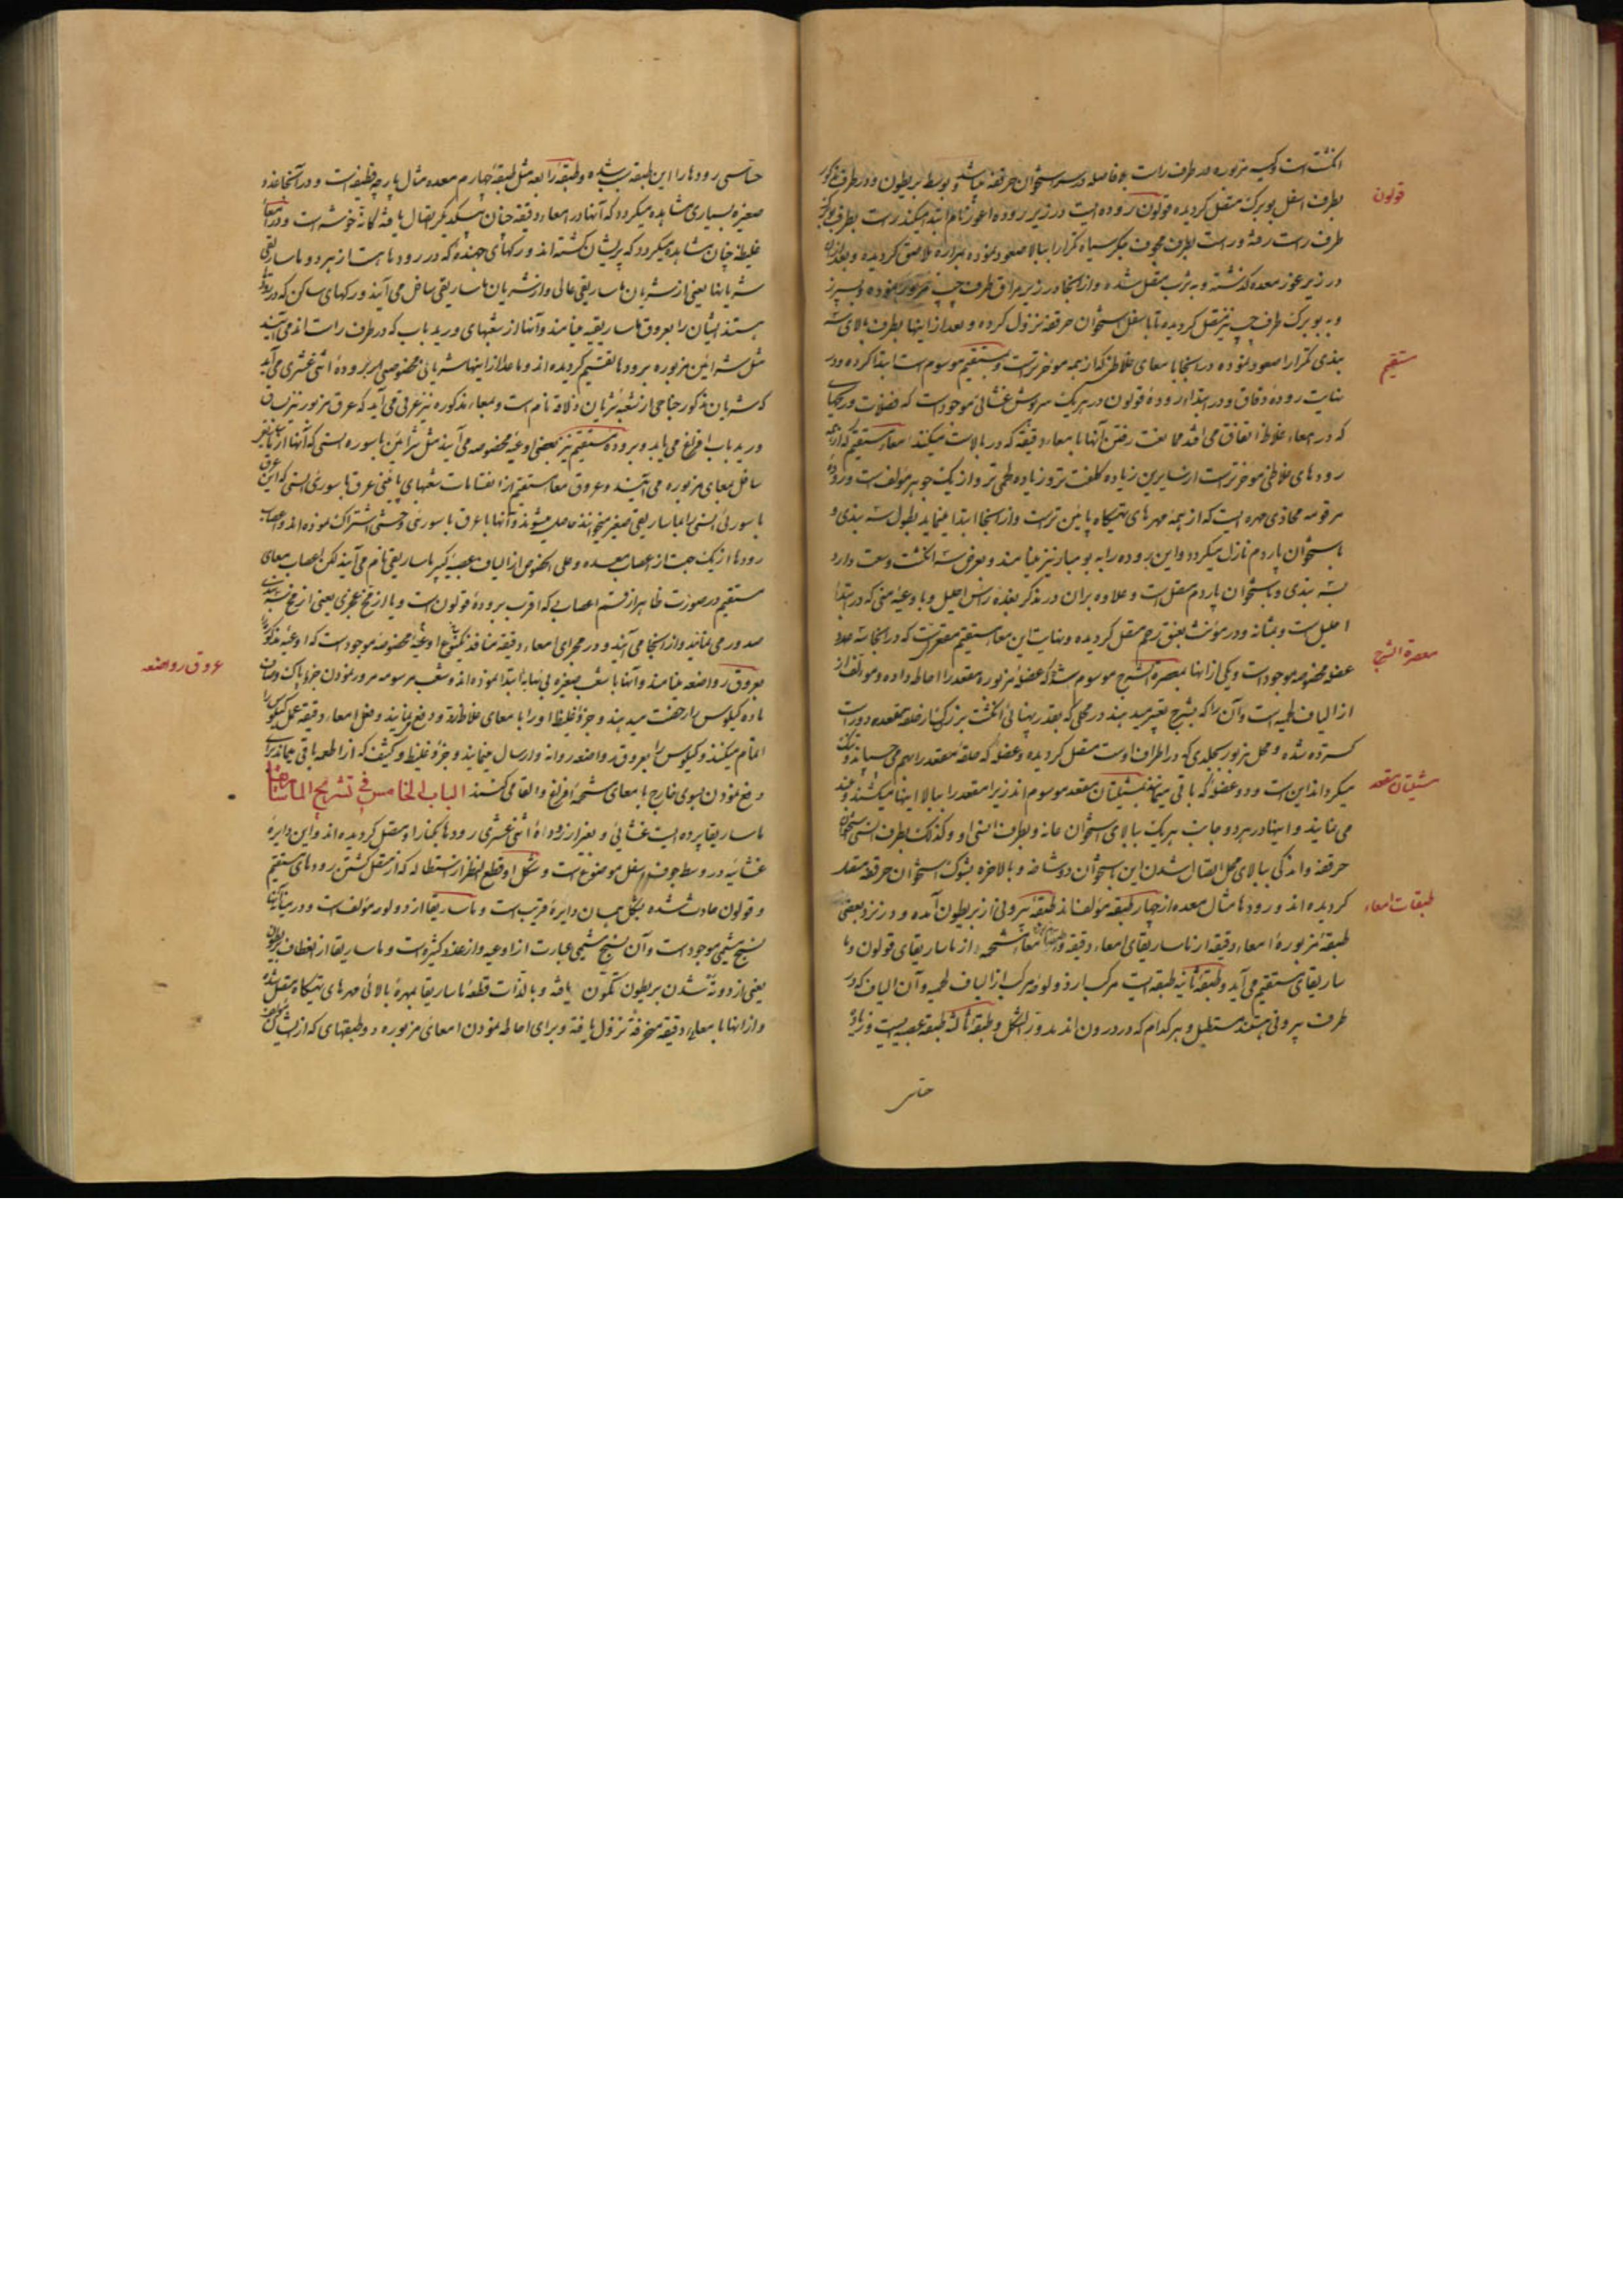 انگشت است و کیسه مزبوره در طرف راست بلا فاصله در سر استخوان حرقفه میباشد و بوسط بریطون و در طرف
بطرف اسفل بوبرک متصل گردیده قولون روده ایست در زیر روده اعور نام ابتدا میکند راست بطرف
طرف راست رفته و راست بطرف مجوف جگر سیاه تکرارا ببالا صعود نموده بمراره ملاصق گردیده و بعد از آن
در زیر عوز معده گذشته و به ثرب متصل شده و از آنجا در زیر مراق طرف چپ مرور نموده و بسپرز
و به بوبرک طرف چپ نیز متصل گردیده تا باسفل استخوان حرقفه نزول کرده و بعد از اینها بطرف بالای سه
بندی تکرارا صعود نموده در اینجا با معای غلاظی که از همه موخرتر است و بمستقیم موسوم است ابتدا کرده و در
نهایت روده دقاق و در ابتدا روده قولون در هر یک سرپوش غشائی موجود است که فضلات و ریحهای
که در معاء غلاظ اتفاق می افتد ممانعت رفتن آنها با معاء دقیقه که در بالاست میکنند معاء مستقیم که از همه
رودهای غلاظی موخرتر است از سایرین زیاده کلفت تر و زیاده لحمی تر و از یک جوهر مولف است و روده
مرقومه محاذی مهره ایست که از همه مهرهای تهیگاه پایین تر است و از آنجا ابتدا مینماید بطول سه بندی و
با ستخوان پاردم نازل میگردد و این روده را به بومبار نیز مینامند و بعرض سه انگشت وسعت دارد
سه بندی و با ستخوان پاردم متصل است و علاوه بر آن در مذکر بغده راس احلیل و باوعیه منی که در ابتدا
احلیل است و بمثانه و در مؤنث بعنق رحم متصل گردیده و نهایت این معا مستقیم مقعد است که در آنجا سه عدد
عضله مخصوصه موجود است و یکی از آنها بمعصرة الشرج موسوم شده که عضله مزبوره مقعد را احاطه داده و مولف از
از الیاف لحمیه است و آن را که بشرج تعبیر میدهند در محلی که بقدر پهنائی انگشت بزرگ از حلقه مقعده دور است
گسترده شده و محل مزبور بجلدی که در اطراف اوست متصل گردیده و عضله که حلقه مقعد را بهم می چسپاند و تنک
میگرداند این است و دو عضله که باقی میمانند بمشیلتان مقعد موسوم اند زیرا مقعد را ببالا اینها میکشند و بلند
می نمایند و اینها در هر دو جانب هر یک ببالای استخوان عانه و بطرف انسی او و کذلک بطرف انسی استخوان
حرقفه و اندکی ببالای محل اتصال شدن این استخوان دو شاخه و بالاخره بشوک استخوان حرقفه متصل
گردیده اند و رودها مثال معده از چهار طبقه مؤلف اند طبقه بیرونی از بریطون آمده و در نزد بعضی
طبقه مزبوره امعاء دقیقه از ماساریقای امعاء دقیقه و معاء شحمه از ماساریقای قولون و ما
ساریقای مستقیم می آید و طبقه ثانیه طبقه ایست مرکب از دو لوله مرکب از الیاف لحمیه و آن الیاف که در
طرف بیرونی هستند مستطیل و هر کدام که در درون اند مدور الشکل و طبقه ثالثه طبقه عصبیه ایست و زیاده
حاسی
قولون
مستقیم
معصرة الشرج
مشیلتان مقعد
طبقات امعاء
حاسی رودها را این طبقه سبب شده و طبقه رابعه مثل طبقه چهارم معده مثال پارچه قطیفه است و در آنجا غدد
صغیره بسیاری مشاهده میگردد که آنها در امعاء دقیقه چنان بیکدیگر اتصال یافته کانه خوشه است و در معاء
غلیظه چنان مشاهده میگردد که پریشان گشته اند و رکهای جهنده که در رودها هست از هر دو ماساریقی
شریانها یعنی از شریان ماساریقی عالی و از شریان ماساریقی سافل می آیند و رکهای ساکن که در رودها
هستند ایشان را بعروق ماساریقیه مینامند و آنها از شعبهای ورید باب که در طرف راست اند می آیند
مثل شرائین مزبوره برودها تقسیم گردیده اند و ماعدا از اینها شریانی مخصوصی بر روده اثنی عشری می آید
که شریان مذکور خنامی از شعبه شریان ذلاقه نام است و بمعاء مذکوره نیز عرقی می آید که عرق مزبور نیز ساق
ورید باب افراغ می یابد و بروده مستقیم نیز بعضی اوعیه مخصوصه می آیند مثل شرائین باسوره انسی که آنها از ماساریقی
سافل بمعای مزبوره می آیند و عروق معاء مستقیم از انقسامات شعبهای پایینی عرق باسوری انسی که این عرق
باسوری انسی را ماساریقی صغیر میخوانند حاصل میشوند و آنها با عرق باسوری وحشی اشتراک نموده اند و اعصاب
رودها از یک جهت از اعصاب معده و علی الخصوص از الیاف عصبیه کبیر ماساریقی نام می آیند لکن اعصاب معای
مستقیم در صورت ظاهر از قسم اعصابی که اقرب بروده قولون است و یا از مخ عجزی یعنی از مخ
صدور می نمایند و از آنجا می آیند و در مجرای امعاء دقیقه منافذ کیموس اوعیه مخصوصه موجود است که اوعیه مذکور را
بعروق رواضعه مینامند و آنها با شعب صغیره بی نهایه ابتدا نموده اند و شعب مرسومه مرور نمودن جزء پاک و صاف
ماده کیلوس را رخصت میدهند و جزؤ غلیظ او را با معای غلاظ رد و دفع نمایند و فعل امعاء دقیقه عمل کیلوس را
اتمام میکنند و کیلوس را بعروق رواضعه روانه و ارسال مینمایند و جزؤ غلیظ و کثیف که از اطعمه باقی میماند برای
دفع نمودن بسوی خارج با معای شحمه افراغ و القا می کنند الباب الخامس فی تشریح الماساریقا
ماساریقا پرده ایست غشائی و بغیر از روده اثنی عشری رودها بکنار او متصل گردیده اند و این دایره
غشائیه در وسط جوف اسفل موضوع است و شکل او قطع النظر از استطاله که از متصل گشتن رودهای مستقیم
و قولون حادث شده بشکل همان دایره قریب است و ماساریقا از دو لوله مؤلف است و در میان آنها
نسج شحمی موجود است و آن نسج شحمی عبارت از اوعیه و از غدد کثیره است و ماساریقا از انعطاف بریطون
یعنی از دو ته شدن بریطون تکون یافته و بالذات قطعه ماساریقا بمهره بالائی مهرهای تهیگاه متصل شده
و از آنها با معاء دقیقه منحرفة نزول یافته و برای احاطه نمودن امعای مزبوره دو طبقهای که از ایشان
عروق رواضعه